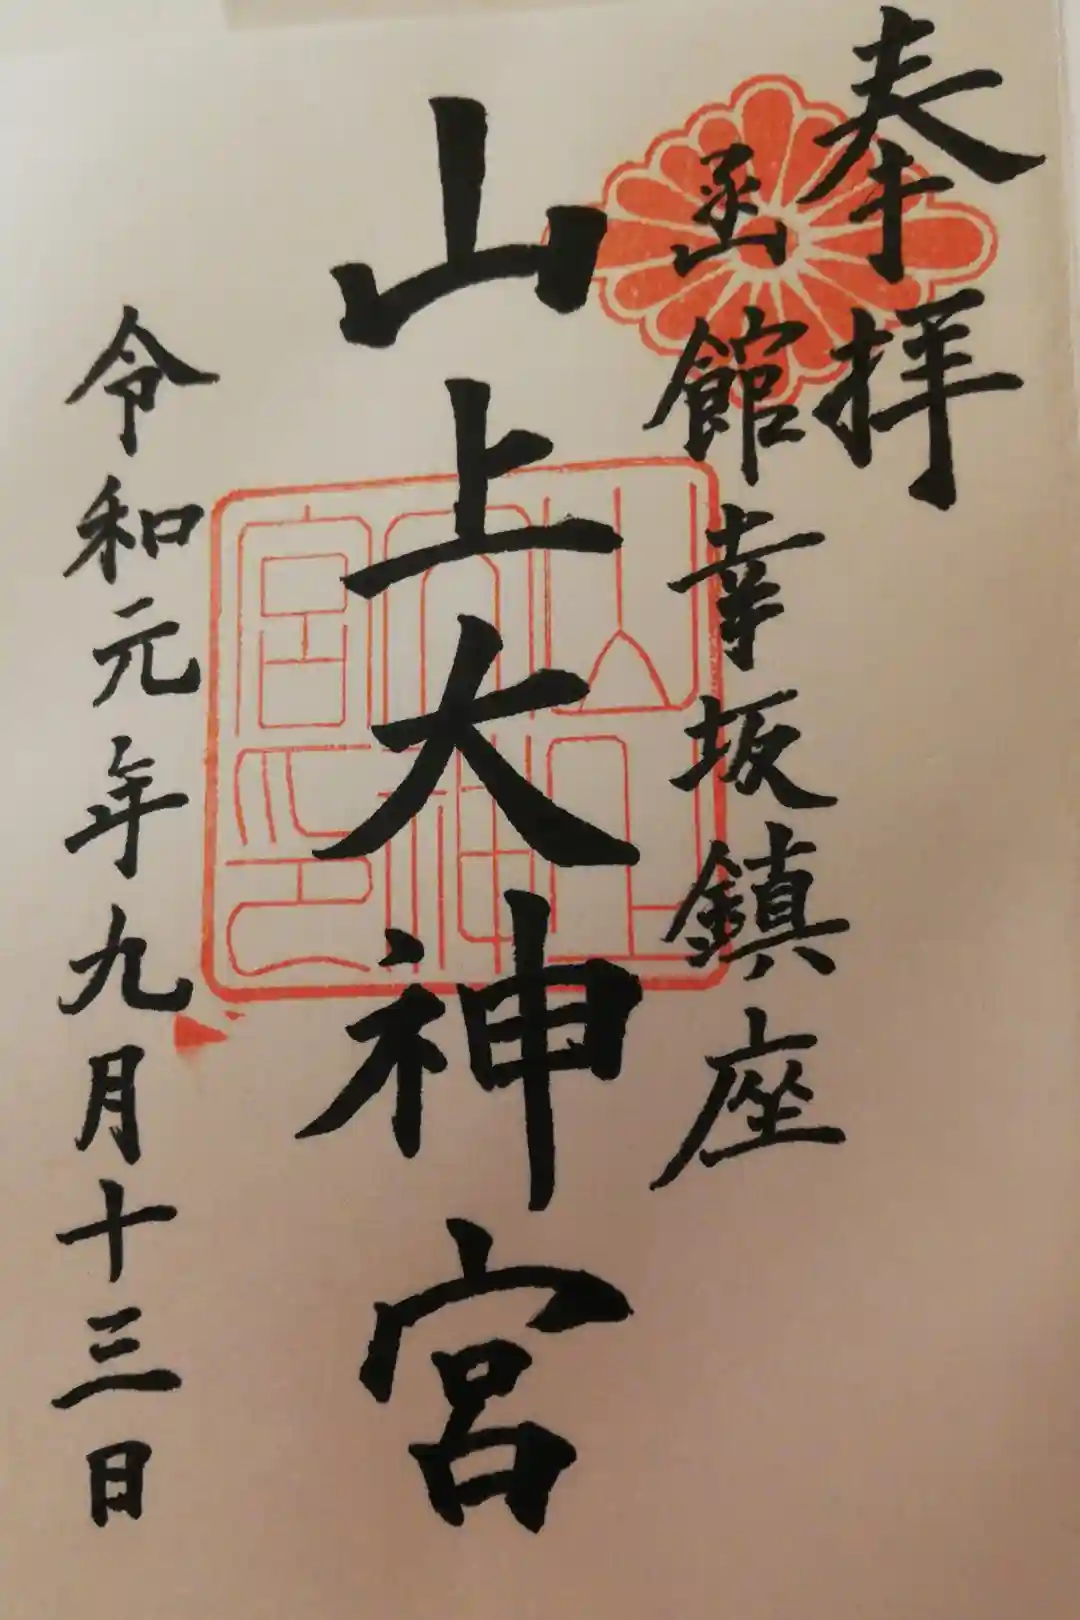 奉拝
函館幸坂鎮座
山上大神宮
山上大神宮印
令和元年九月十三日